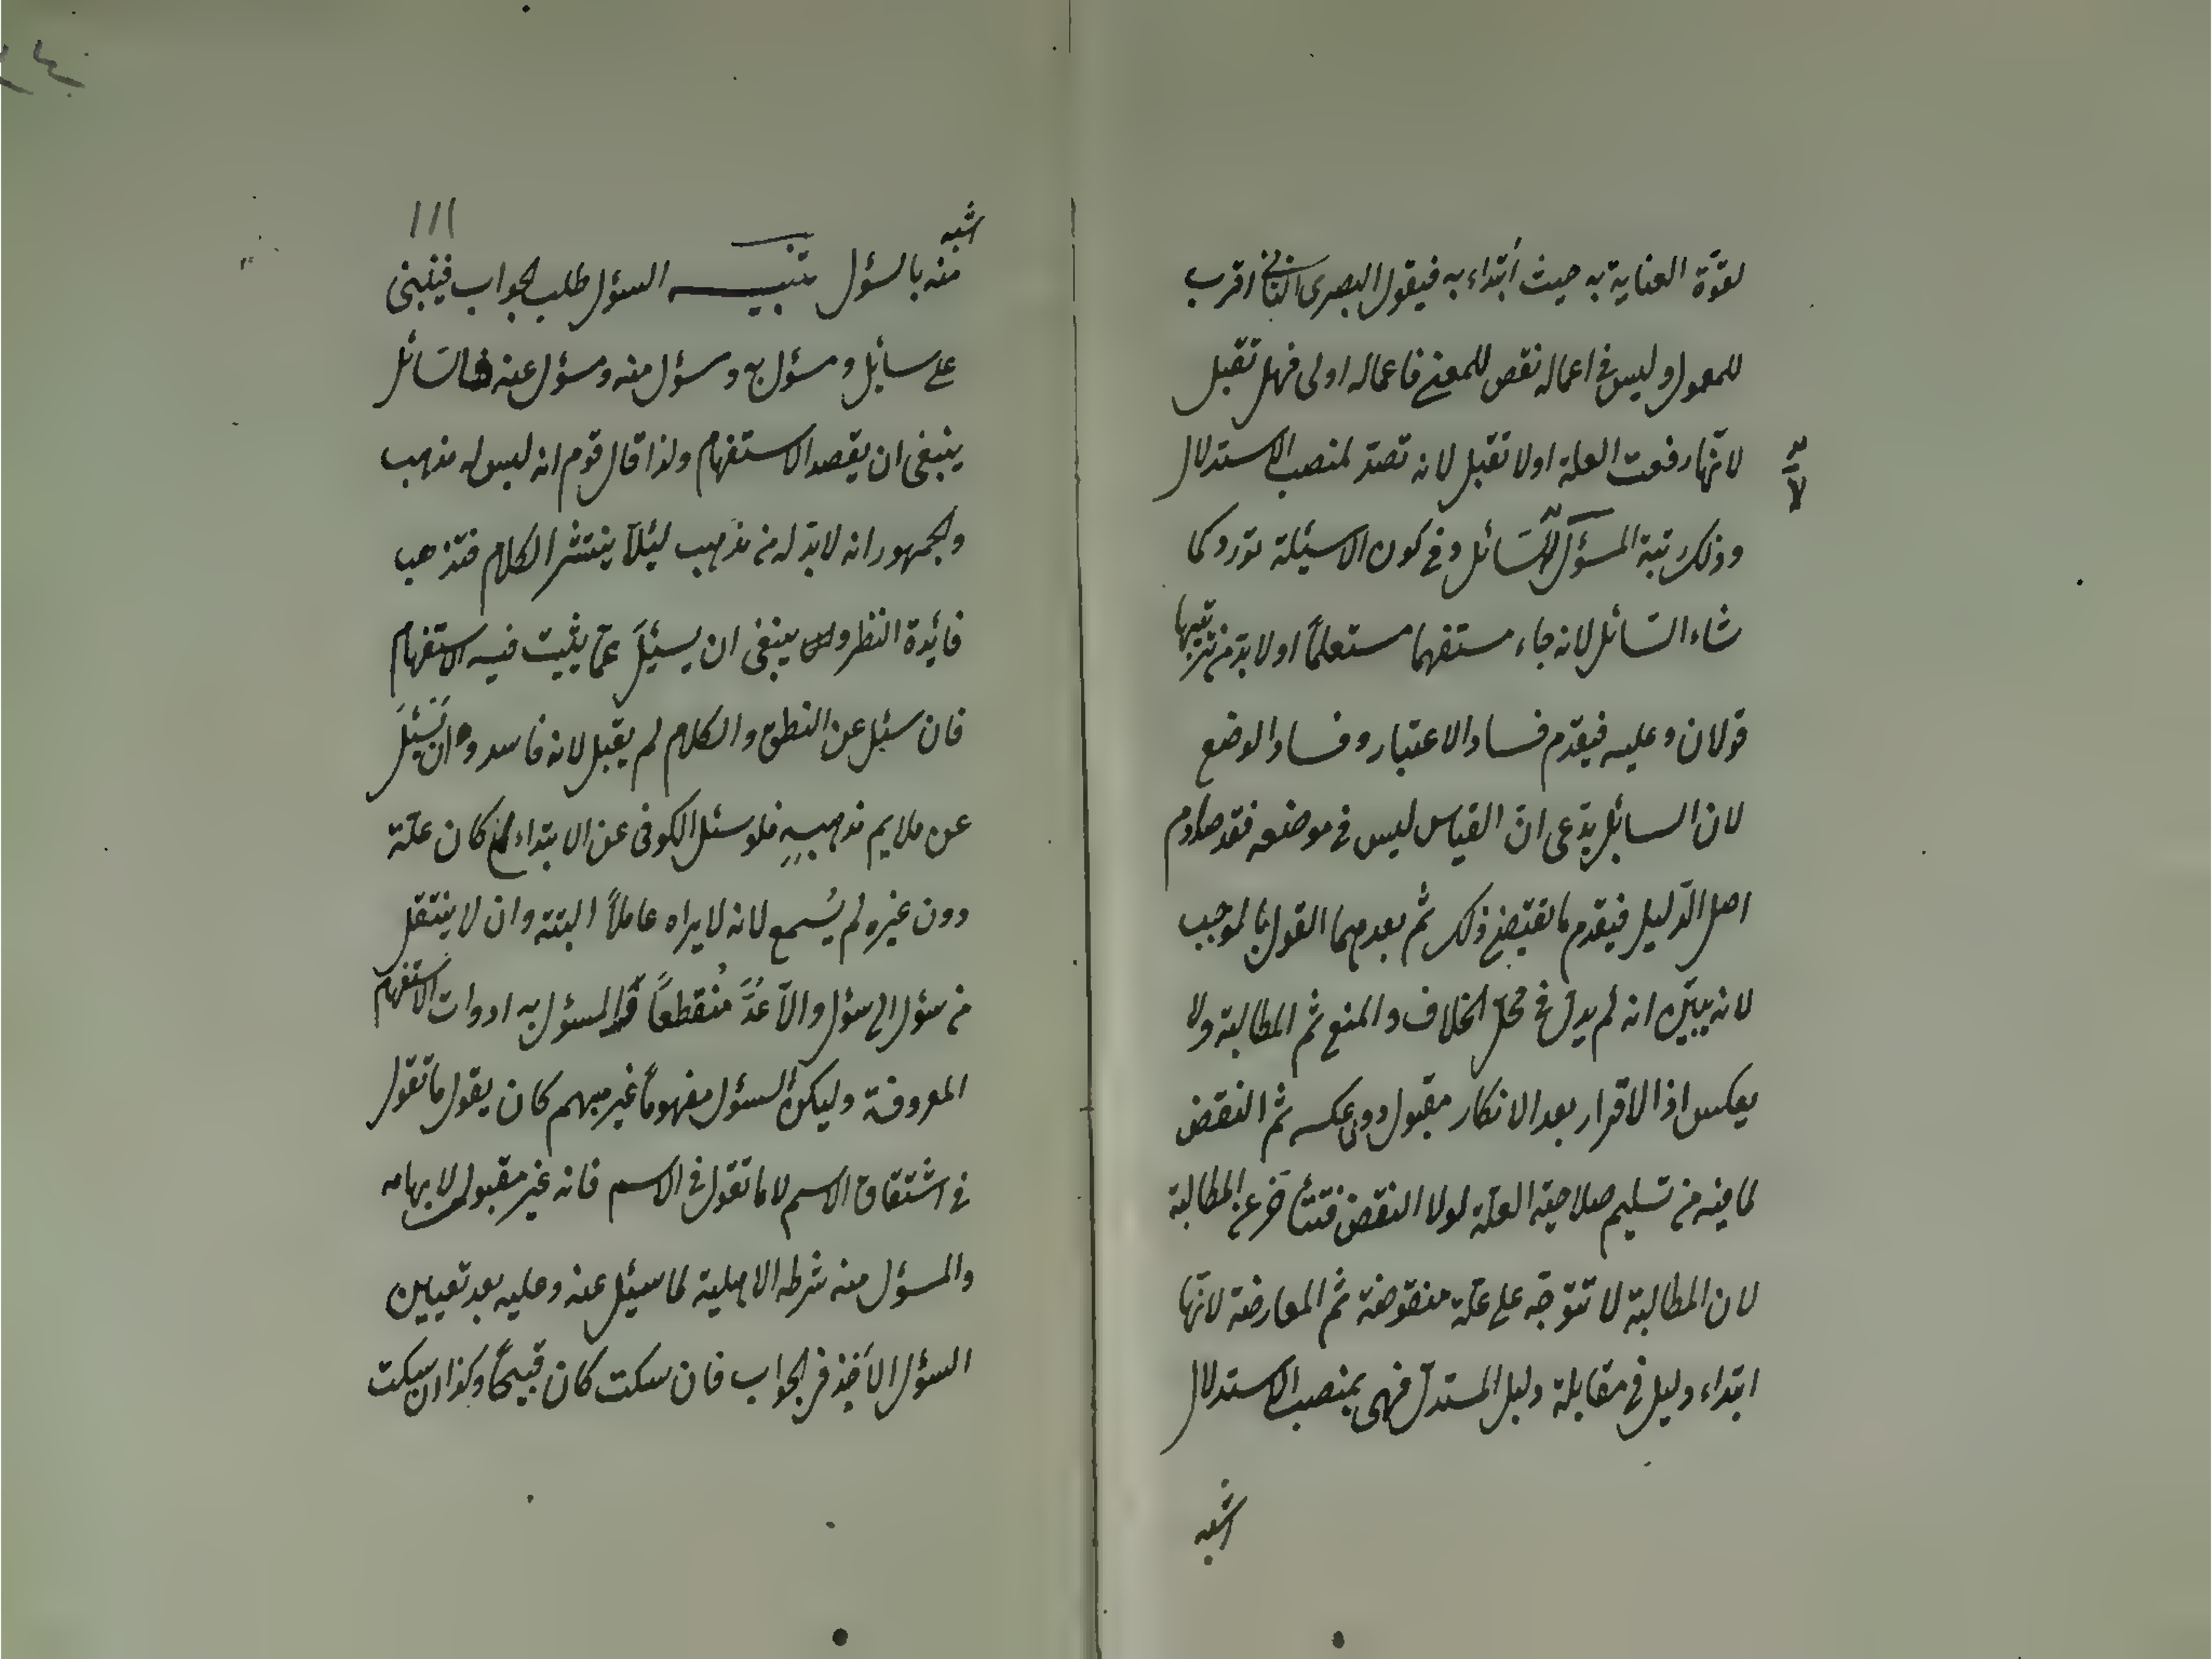 لقوّة العناية به حيث ابتداء به فيقول البصرى الثانى اقرب
للمعمول وليس فى اعماله نقص للمعنى فاعماله اولى فهل تقبل
لانّها رفعت العلة اولا تقبل لانه تصدّ لمنصب الاستدلال
وذلك رتبة المسؤل لا السّائل وفى كون الاسئلة تورد كما
شاء السّائل لانه جاء مستفهما مستعلماً او لا بدّ من ترتيبها
قولان وعليه فيقدم فساد الاعتبار وفساد الوضع
لان السائل يدّعى انّ القياس ليس فى موضعه فقد صادم
اصل الدّليل فيقدم ما يقتضى ذلك ثم بعدهما القول بالموجب
لانه يبيّن انه لم يدلّ فى محلّ الخلاف والمنع ثم المطالبة ولا
يعكس اذ الاقرار بعد الانكار مقبول دون عكسه ثم النقض
لما فيه من تسليم صلاحية العلّة لولا النقض فتتأخر عن المطالبة
لان المطالبة لا تتوجّه على علّة منقوضة ثم المعارضة لانّها
ابتداء دليل فى مقابلة دليل المستدلّ فهى بمنصب الاستدلال
اشبه
١١١
اشبه
منه بالسؤل تنبيه السؤل طلب الجواب فينبنى
على سائل ومسؤل به ومسؤل منه ومسؤل عنه فالسّائل
ينبغى ان يقصد الاستفهام ولذا قال قوم انه ليس له مذهب
والجمهور انه لا بدّ له من مذهب ليئلّا ينتشر الكلام فتذهب
فائدة النظر وان ينبغى ان يسئل عمّا يثبت فيه الاستفهام
فان سئل عن النطق والكلام لم يقبل لانه فاسد وان يَسْئل
عن ملايم مذهبه فلو سئل الكوفى عن الابتداء كان علّة
دون غيره لم يُسمع لانه لا يراه عاملاً البتة وان لا ينتقل
من سؤل الى سؤل والّا عُدَّ مُنقطعاً والمسؤل به ادوات الاستفهام
المعروفة وليكن السؤل مفهوماً غير مبهم كان يقول ما تقول
فى اشتقاق الاسم لا ما تقول فى الاسم فانه غير مقبول لابهامه
والمسؤل منه شرطه الاهلية لما سيئل عنه وعليه بعد تعيين
السؤل الأخذ فى الجواب فان سكت كان قبيحاً وكذا ان سكت